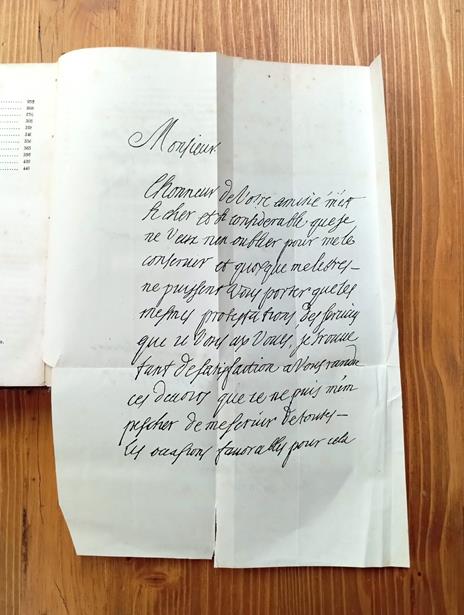 353
365
395
440
Monsieur
l'honneur de votre amitié m'est
si cher et si considerable que je
ne veux rien oublier pour me le
conserver et quoique me lettres
ne puissent vous porter que les
mesmes protestations de service
que je vous ay vouez, je trouve
tant de satisfaction a vous randre
ces devoirs que je ne puis m'em
pescher de me servir de toutes
les occasions favorables pour cela